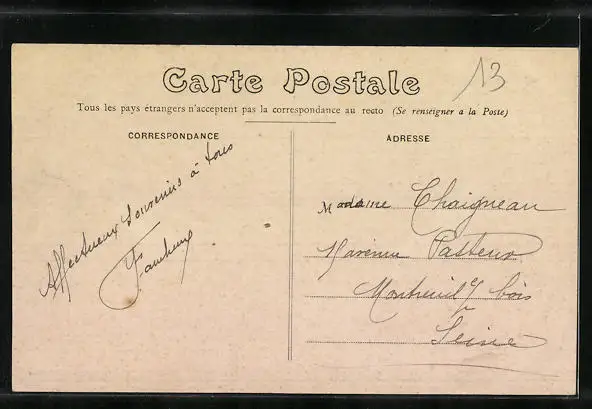 Carte Postale
13
Tous les pays étrangers n'acceptent pas la correspondance au recto (Se renseigner a la Poste)
CORRESPONDANCE
Affectueux souvenirs à tous
ADRESSE
Madame Chaigneau
Avenue Pasteur
Montreuil s/ bois
Seine